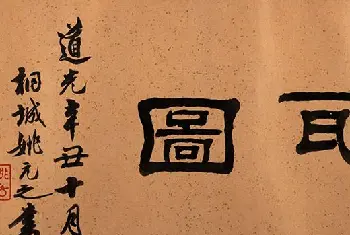 圖
道光辛丑十月
桐城姚元之書